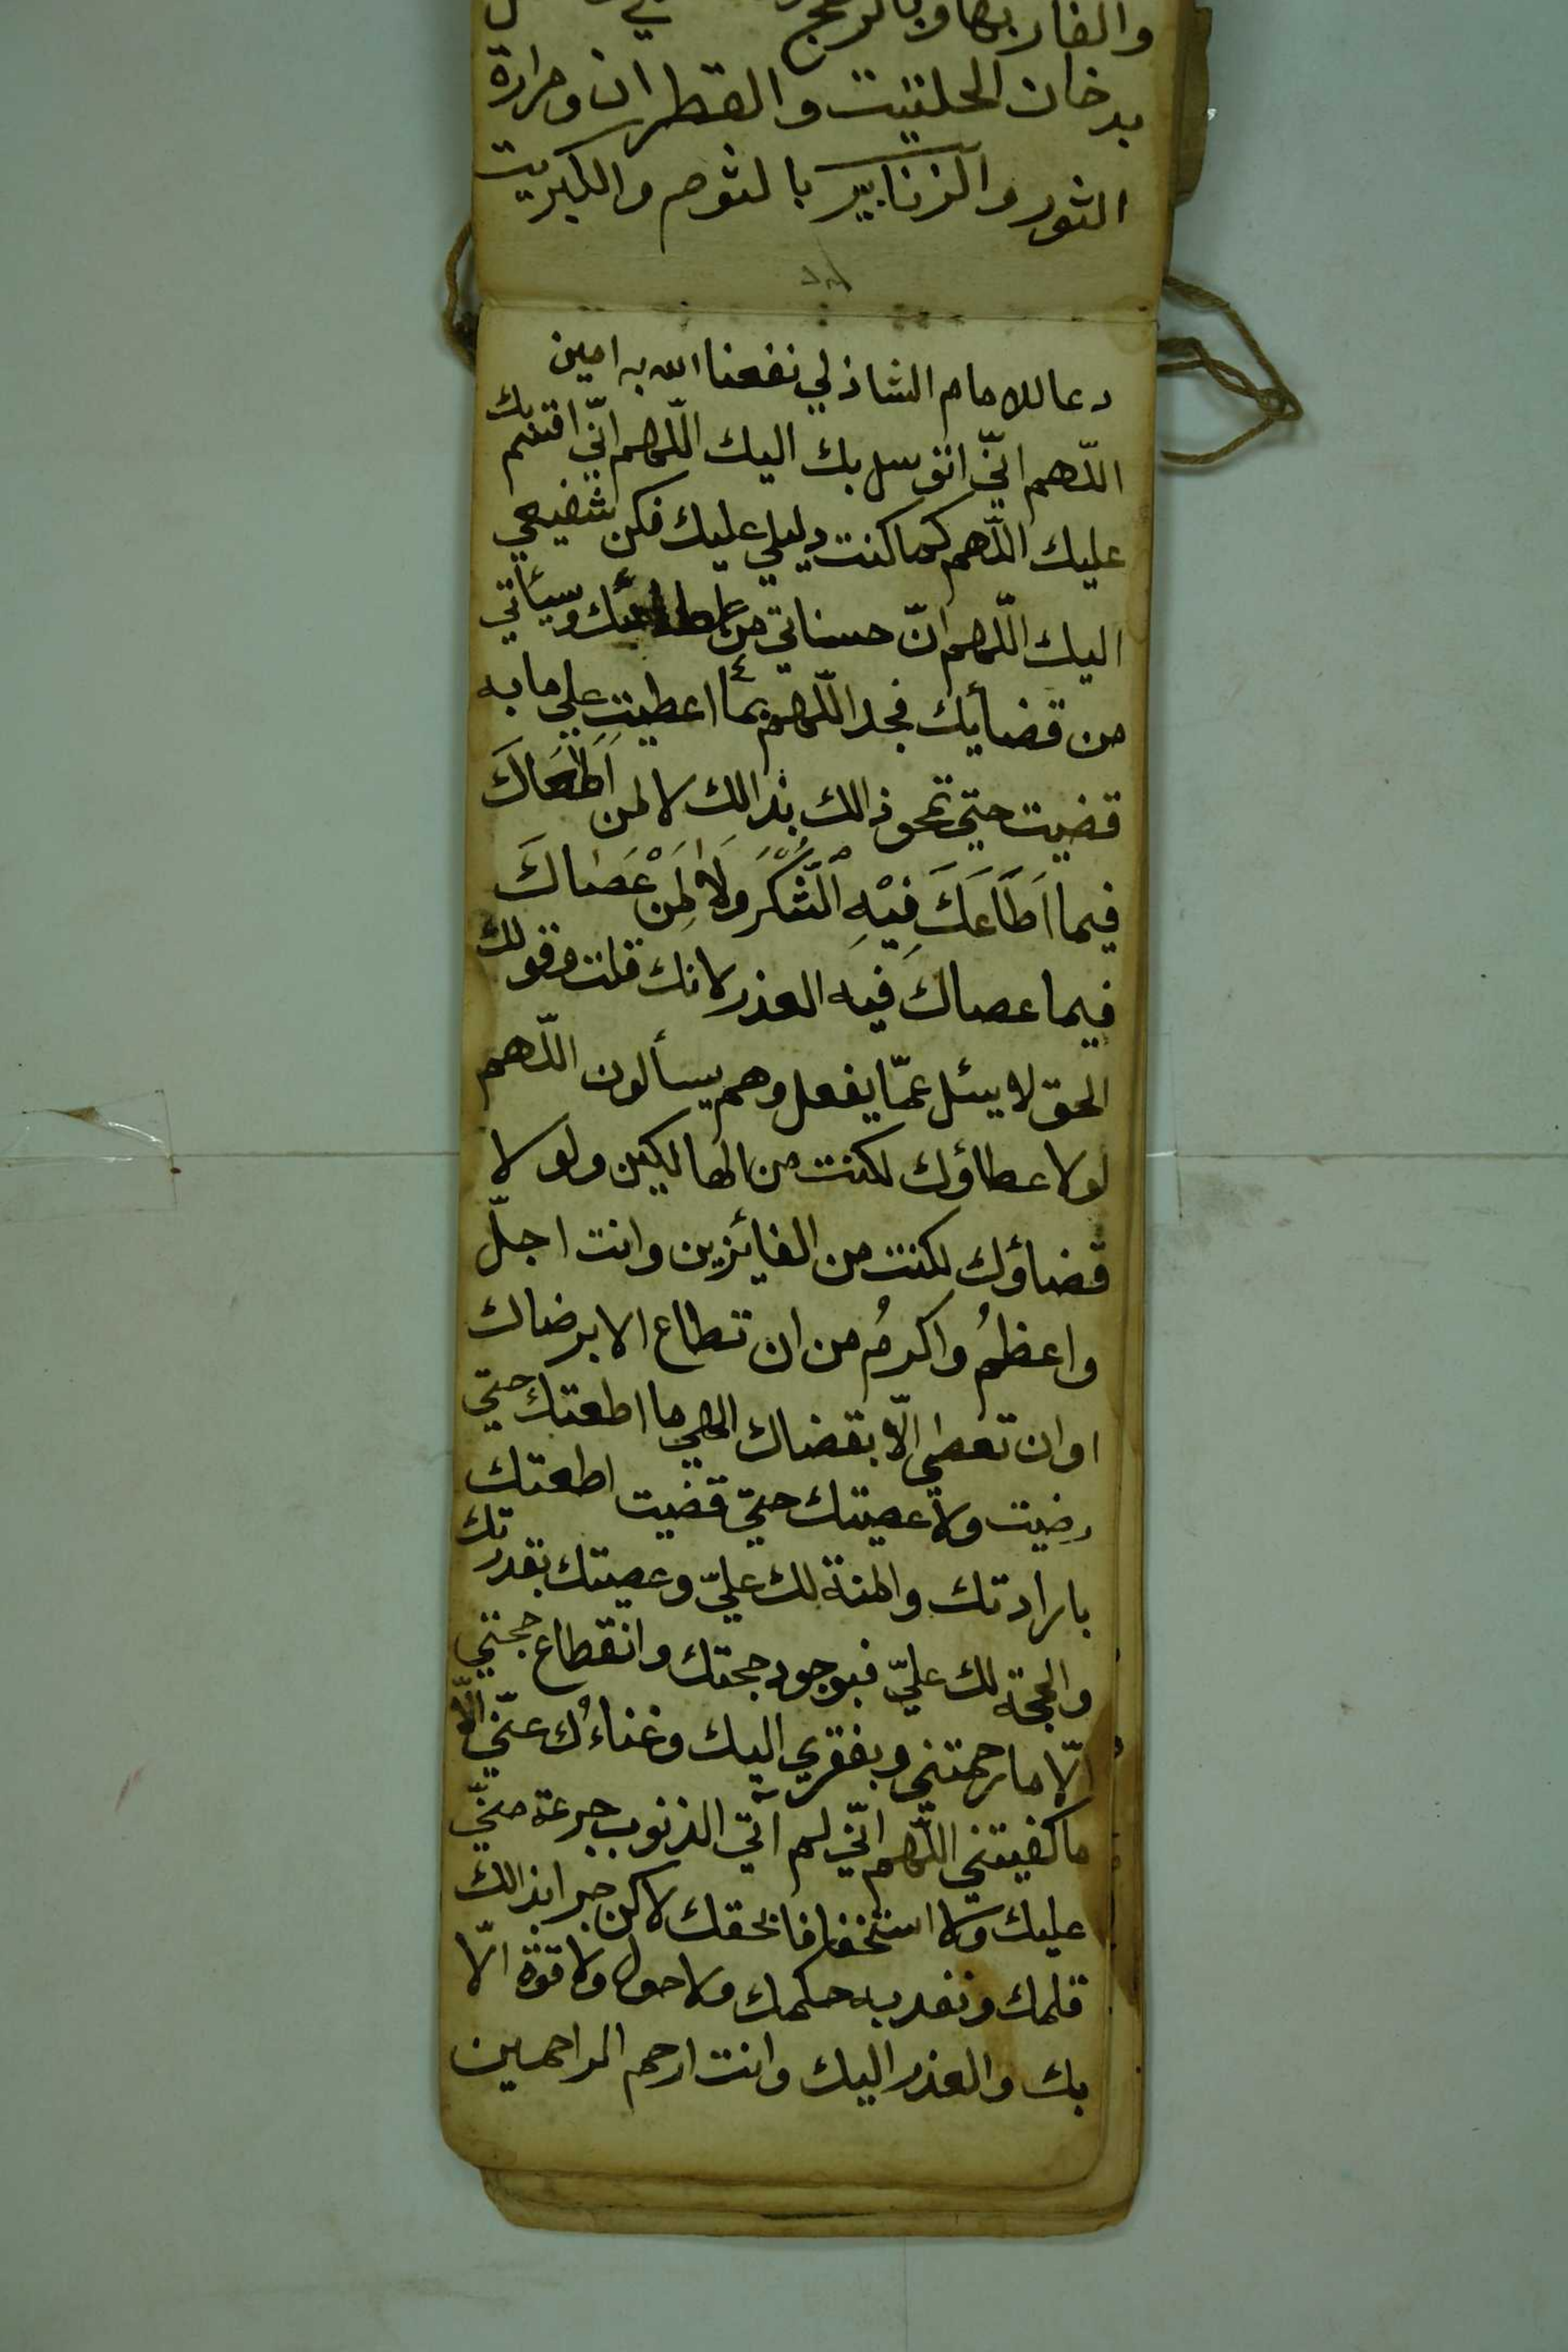 بدخان الحلتيت والقطران ومرارة
الثور والزنابير بالثوم والكبريت
دعا للامام الشاذلي نفعنا الله به امين
اللّهم انّي اتوسل بك اليك اللّهم انّي اقسم بك
عليك اللّهم كما كنت دليلي عليك فكن شفيعي
اليك اللّهم انّ حسناتي من عطائك وسيئاتي
من قضايك فجد اللّهم بما اعطيت علي ما به
قضيت حتي تمحو ذالك بذالك لا لمن اطاعك
فيما اَطَاعَكَ فِيْهِ الشُّكْرُ وَلَا لِمَنْ عَصَاكَ
فيما عصاك فيه العذر لانك قلت وقولك
الحق لا يسئل عمّا يفعل وهم يسألون اللّهم
لولا عطاؤك لكنت من الهالكين ولولا
قضاؤك لكنت من الفائزين وانت اجلّ
واعظمُ واكرمُ من ان تطاع الا برضاك
او ان تعصي الّا بقضاك الهي ما اطعتك حتي
رضيت ولا عصيتك حتي قضيت اطعتك
بارادتك والمنة لك عليّ وعصيتك بقدرتك
والحجة لك عليّ فبوجود حجتك وانقطاع حجتي
الّا ما رحمتني وبفقري اليك وغناءُك عنّي الّا
ما كفيتني اللّهم انّي لم آتي الذنوب جرءة منّي
عليك ولا استخفافا بحقك لاكن جرا بذالك
قلمك ونفد به حكمك ولا حول ولا قوة الّا
بك والعذر اليك وانت ارحم الراحمين